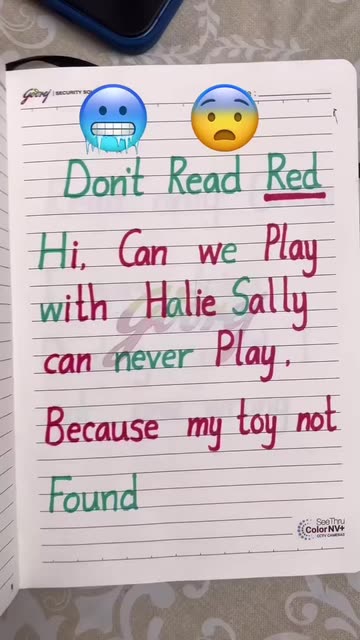 Godrej | SECURITY SOL
Don't Read Red
Hi, Can we Play
with Halie Sally
can never Play.
Because my toy not
Found
SeeThru
Color NV+
CCTV CAMERAS